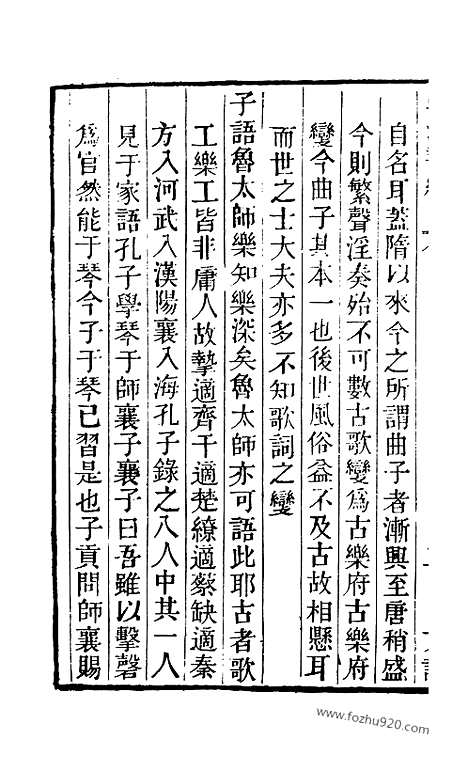 自名耳蓋隋以來今之所謂曲子者漸興至唐稍盛
今則繁聲淫奏殆不可數古歌變爲古樂府古樂府
變今曲子其本一也後世風俗益不及古故相懸耳
而世之士大夫亦多不知歌詞之變
子語魯太師樂知樂深矣魯太師亦可語此耶古者歌
工樂工皆非庸人故摯適齊干適楚繚適蔡缺適秦
方入河武入漢陽襄入海孔子錄之八人中其一人
見于家語孔子學琴于師襄子襄子曰吾雖以擊磬
爲官然能于琴今子于琴已習是也子貢問師襄賜
www.fozhu920.com